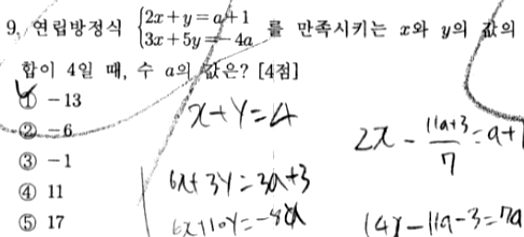 9. 연립방정식 {2x+y=a+1 를 만족시키는 x와 y의 값의
3x+5y=-4a
합이 4일 때, 수 a의 값은? [4점]
① -13
② -6
③ -1
④ 11
⑤ 17
x+y=4
6x+3y=3a+3
6x+10y=-8a
2x - (11a+3)/7 = a+1
14x-11a-3=7a